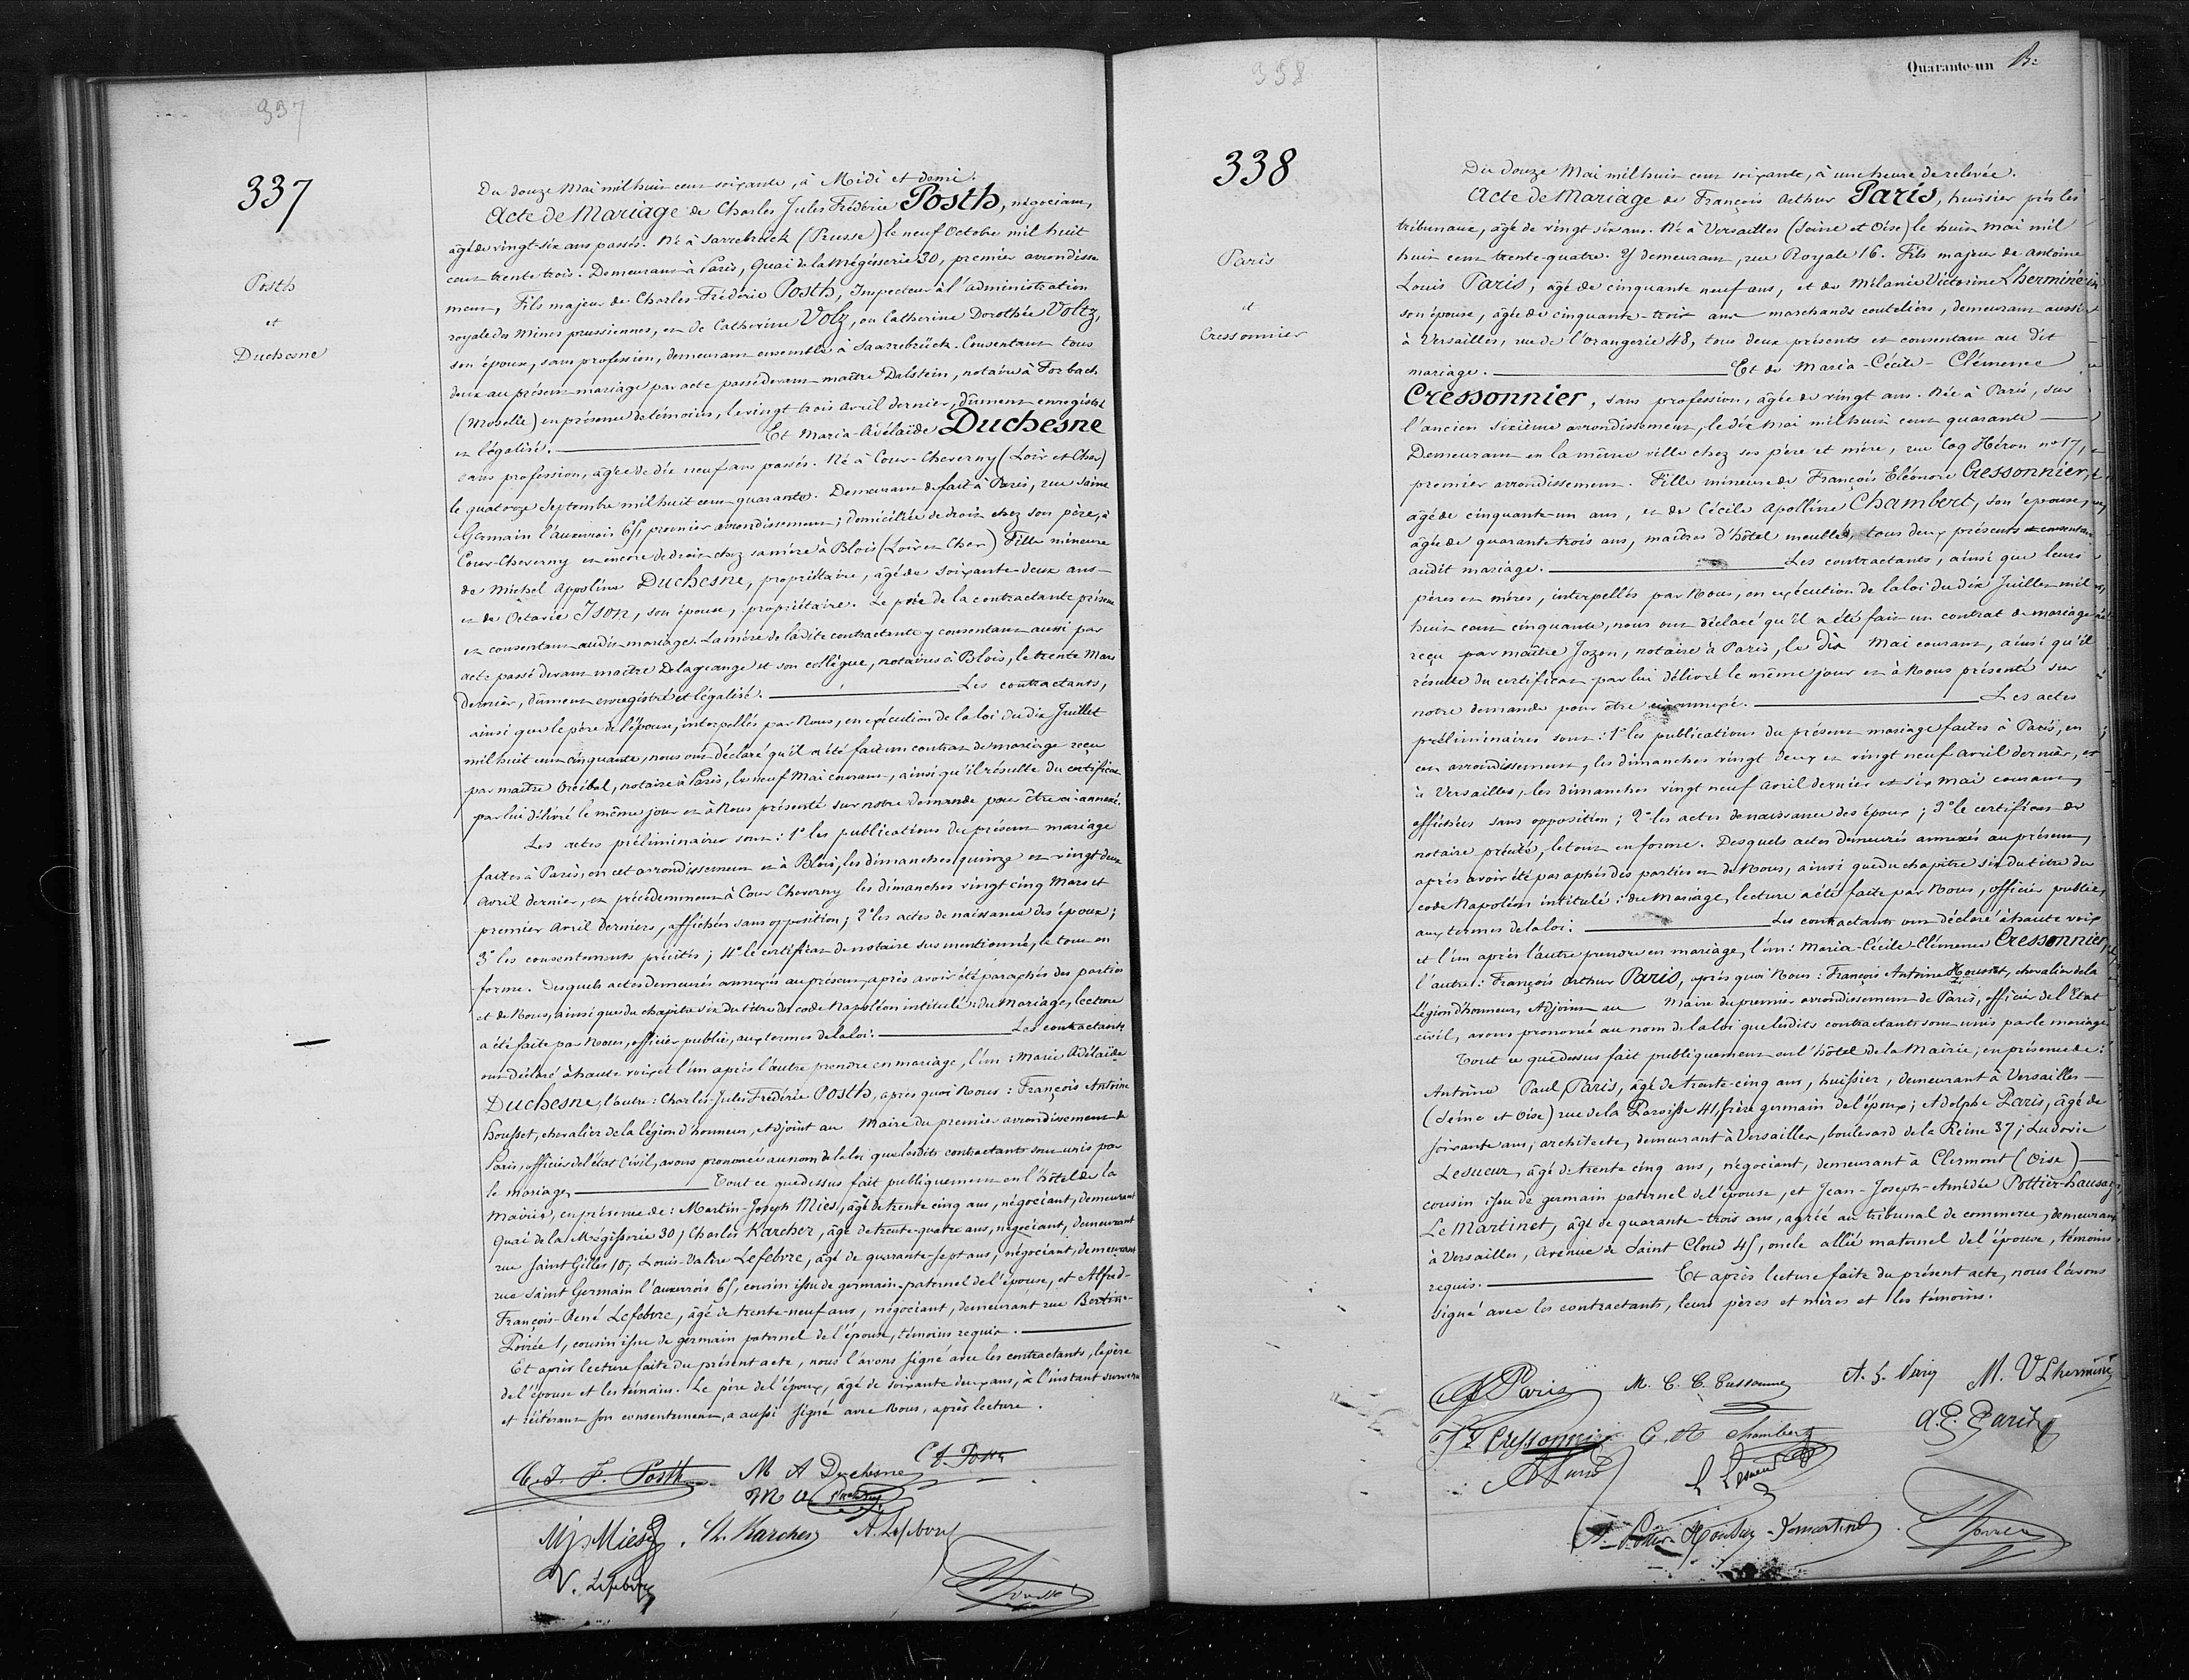 337
337
Posth
et
Duchesne
Du douze Mai mil huit cent soixante, à Midi et demi.
Acte de Mariage de Charles Jules Frédéric Posth, négociant,
âgé de vingt-six ans passés. Né à Sarrebrück (Prusse) le neuf Octobre mil huit
cent trente trois. Demeurant à Paris, Quai de la Mégisserie 30, premier arrondisse
ment, Fils majeur de Charles-Frédéric Posth, Inspecteur à l'administration
royale des Mines prussiennes, et de Catherine Volz, ou Catherine Dorothée Voltz,
son épouse, sans profession, demeurant ensemble à Saarrebrück. Consentant tous
deux au présent mariage par acte passé devant maître Dalstein, notaire à Forbach
(Moselle) en présence de témoins, le vingt trois avril dernier, dûment enregistré
et légalisé. Et Maria-Adélaïde Duchesne
sans profession, âgée de dix neuf ans passés. Né à Cour-Cheverny (Loir et Cher)
le quatorze Septembre mil huit cent quarante. Demeurant de fait à Paris, rue Saint
Germain l'auxerrois 65, premier arrondissement; domiciliée de droit chez son père, à
Cour-Cheverny et encore de droit chez sa mère à Blois (Loir et Cher) Fille mineure
de Michel Appoline Duchesne, propriétaire, âgé de soixante-deux ans
et de Octavie Ison, son épouse, propriétaire. Le père de la contractante présent
et consentant audit mariage. La mère de la dite contractante y consentant aussi par
acte passé devant maître Delagrange et son collègue, notaires à Blois, le trente Mars
dernier, dûment enregistré et légalisé. Les contractants,
ainsi que le père de l'épouse, interpellés par Nous, en exécution de la loi du dix Juillet
mil huit cent cinquante, nous ont déclaré qu'il a été fait un contrat de mariage reçu
par maître Orcibal, notaire à Paris, le neuf Mai courant, ainsi qu'il résulte du certificat
par lui délivré le même jour et à Nous présenté sur notre demande pour être ci-annexé.
Les actes préliminaires sont: 1° les publications du présent mariage
faites à Paris, en cet arrondissement et à Blois, les dimanches quinze et vingt deux
avril dernier, et précédemment à Cour Cheverny les dimanches vingt cinq Mars et
premier avril derniers, affichées sans opposition; 2° les actes de naissance des époux;
3° les consentements précités; 4° le certificat de notaire sus mentionné, le tout en
forme. Desquels actes demeurés annexés au présent, après avoir été paraphés des parties
et de Nous, ainsi que du chapitre six du titre du code Napoléon intitulé: du Mariage, lecture
a été faite par Nous, officier public, aux termes de la loi: Les contractants
ont déclaré à haute voix et l'un après l'autre prendre en mariage, l'un: Marie Adélaïde
Duchesne, l'autre: Charles-Jules Frédéric Posth, après quoi Nous: François Antoine
Housset, chevalier de la légion d'honneur, Adjoint au Maire du premier arrondissement de
Paris, officier de l'état Civil, avons prononcé au nom de la loi que lesdits contractants sont unis par
le mariage, Tout ce que dessus fait publiquement en l'hôtel de la
Mairie, en présence de: Martin-Joseph Mies, âgé de trente cinq ans, négociant, demeurant
Quai de la Mégisserie 30; Charles Karcher, âgé de trente-quatre ans, négociant, demeurant
rue Saint Gilles 10; Louis-Valère Lefebvre, âgé de quarante-sept ans, négociant, demeurant
rue Saint Germain l'auxerrois 65, cousin issu de germain paternel de l'épouse, et Alfred-
François-René Lefebvre, âgé de trente-neuf ans, négociant, demeurant rue Bertin-
Poirée 1, cousin issu de germain paternel de l'épouse, témoins requis.
Et après lecture faite du présent acte, nous l'avons signé avec les contractants, le père
de l'épouse et les témoins. Le père de l'époux, âgé de soixante deux ans, à l'instant survenu
et réitérant son consentement, a aussi signé avec Nous, après lecture.
C. J. F. Posth M A Duchesne C f. Posth
M a Duchesne
Mj. Mies Ch. Karcher A. Lefebvre
V. Lefebvre Housset
338
Quarante-un
338
Paris
et
Cressonnier
Du douze Mai mil huit cent soixante, à une heure de relevée.
Acte de Mariage de François Arthur Paris, huissier près les
tribunaux, âgé de vingt six ans. Né à Versailles (Seine et Oise) le huit Mai mil
huit cent trente-quatre. Y demeurant, rue Royale 16. Fils majeur de Antoine
Louis Paris, âgé de cinquante neuf ans, et de Mélanie Victorine Lherminé
son épouse, âgée de cinquante-trois ans marchands couteliers, demeurant aussi
à Versailles, rue de l'Orangerie 48, tous deux présents et consentant au dit
mariage. Et de Maria-Cécile-Clémence
Cressonnier, sans profession, âgée de vingt ans. Née à Paris, sur
l'ancien sixième arrondissement, le dix Mai mil huit cent quarante
Demeurant en la même ville chez ses père et mère, rue Coq Héron n° 17,
premier arrondissement. Fille mineure de François Eléonore Cressonnier,
âgé de cinquante-un ans, et de Cécile Apolline Chambert, son épouse,
âgée de quarante trois ans, maîtres d'hôtel meublé, tous deux présents et consentant
audit mariage. Les contractants, ainsi que leurs
pères et mères, interpellés par Nous, en exécution de la loi du dix Juillet mil
huit cent cinquante, nous ont déclaré qu'il a été fait un contrat de mariage
reçu par maître Jozon, notaire à Paris, le dix Mai courant, ainsi qu'il
résulte du certificat par lui délivré le même jour et à Nous présenté sur
notre demande pour être ci-annexé. Les actes
préliminaires sont: 1° les publications du présent mariage faites à Paris, en
cet arrondissement, les dimanches vingt deux et vingt neuf avril dernier, et
à Versailles, les dimanches vingt neuf avril dernier et six Mai courant,
affichées sans opposition; 2° les actes de naissance des époux; 3° le certificat de
notaire précité, le tout en forme. Desquels actes demeurés annexés au présent,
après avoir été paraphés des parties et de Nous, ainsi que du chapitre six du titre du
code Napoléon intitulé: du Mariage, lecture a été faite par Nous, officier public,
aux termes de la loi. Les contractants ont déclaré à haute voix
et l'un après l'autre prendre en mariage, l'un: Maria-Cécile-Clémence Cressonnier,
l'autre: François Arthur Paris, après quoi Nous: François Antoine Housset, chevalier de la
Légion d'honneur, Adjoint au Maire du premier arrondissement de Paris, officier de l'Etat
civil, avons prononcé au nom de la loi que lesdits contractants sont unis par le mariage
Tout ce que dessus fait publiquement en l'hôtel de la Mairie, en présence de:
Antoine Paul Paris, âgé de trente-cinq ans, huissier, demeurant à Versailles
(Seine et Oise) rue de la Paroisse 41, frère germain de l'époux; Adolphe Paris, âgé de
soixante ans, architecte, demeurant à Versailles, boulevard de la Reine 37; Ludovic
Lesueur, âgé de trente cinq ans, négociant, demeurant à Clermont (Oise)
cousin issu de germain paternel de l'épouse, et Jean-Joseph-Amédée Pottier-hausay
Le Martinet, âgé de quarante-trois ans, agréé au tribunal de commerce, demeurant
à Versailles, Avenue de Saint Cloud 45, oncle allié maternel de l'épouse, témoins
requis. Et après lecture faite du présent acte, nous l'avons
signé avec les contractants, leurs pères et mères et les témoins.
Paris M. C. C. Cressonnier A. L. Paris M. V Lherminé
F E Cressonnier C. A Chambert A P. Paris
A Paris L Lesueur
Housset